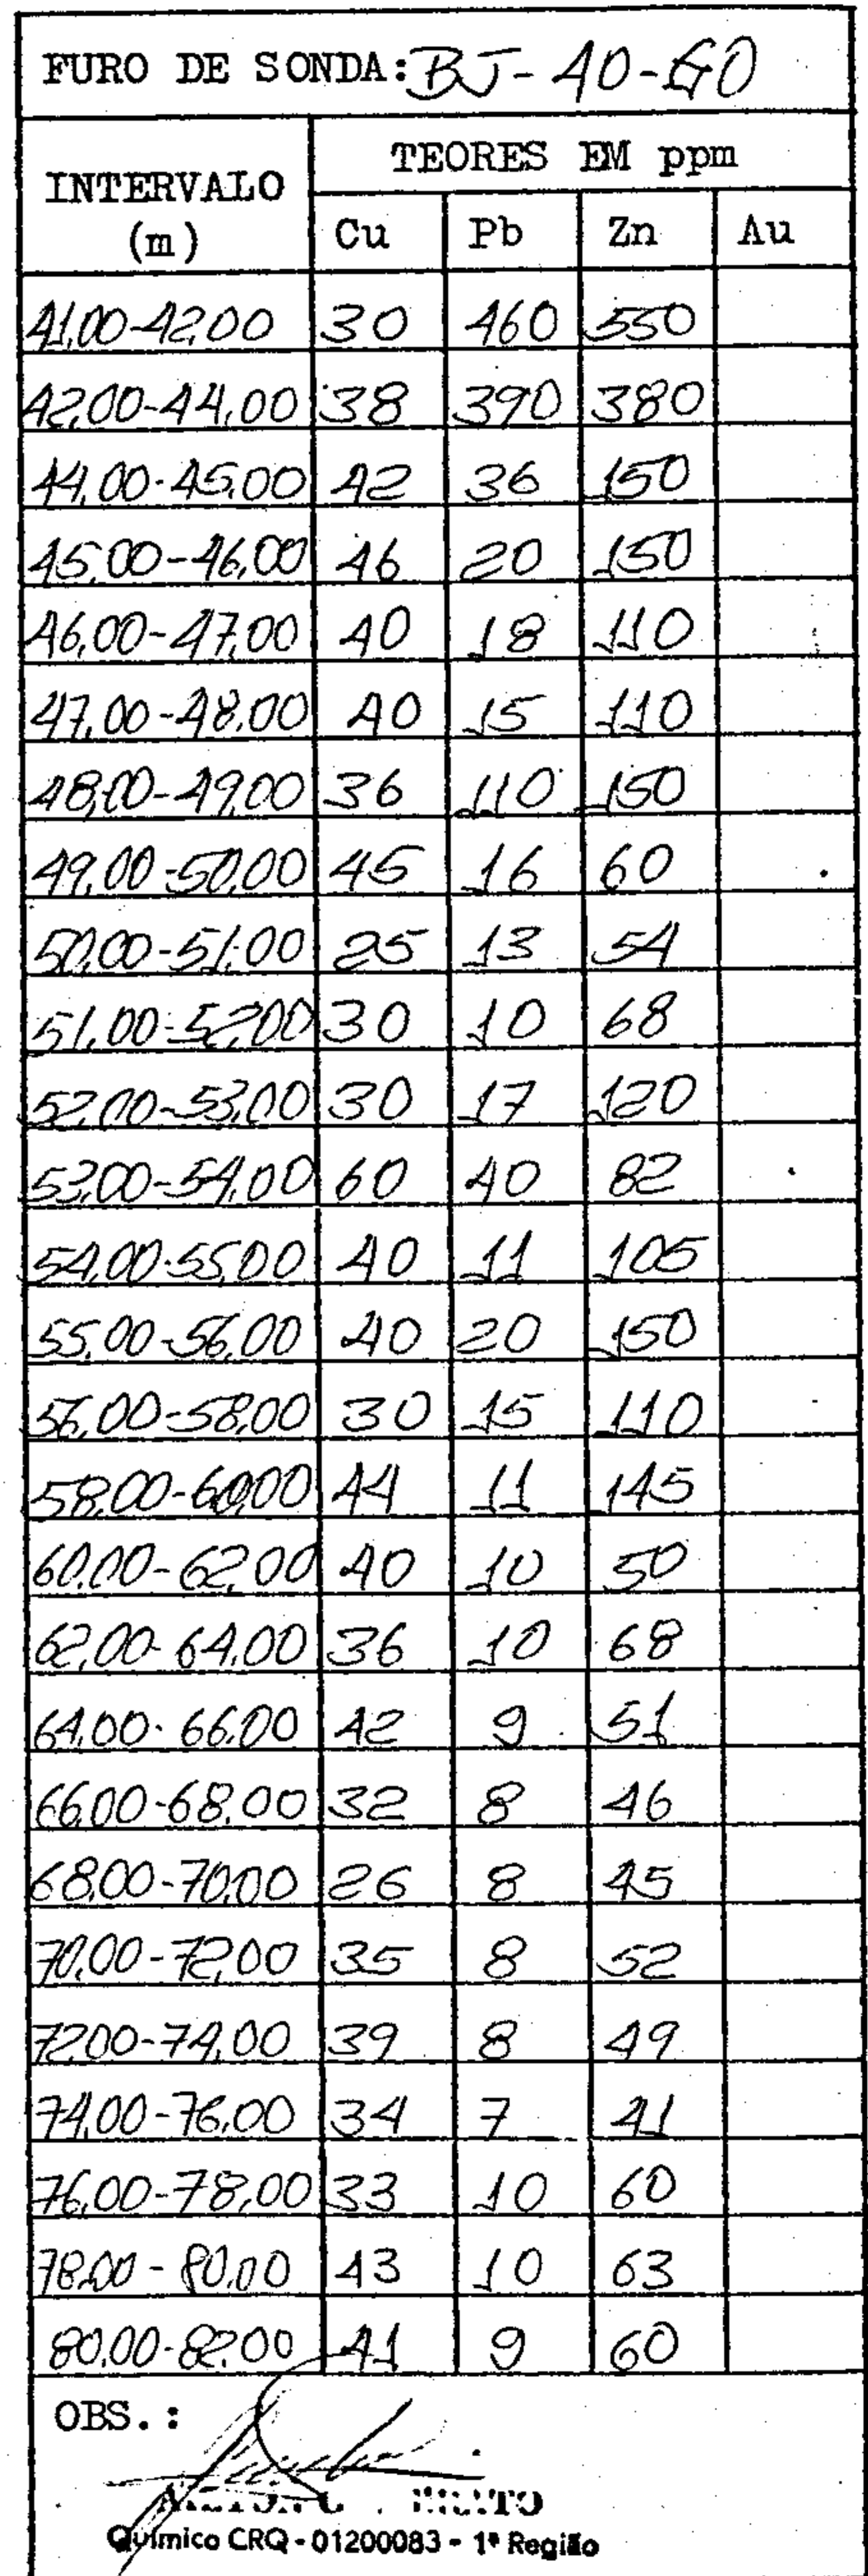 FURO DE SONDA: BJ-40-GO
INTERVALO (m) TEORES EM ppm
Cu Pb Zn Au
41,00-42,00 30 460 550
42,00-44,00 38 390 380
44,00-45,00 42 36 150
45,00-46,00 46 20 150
46,00-47,00 40 18 110
47,00-48,00 40 15 110
48,00-49,00 36 110 150
49,00-50,00 45 16 60
50,00-51,00 25 13 54
51,00-52,00 30 10 68
52,00-53,00 30 17 120
53,00-54,00 60 40 82
54,00-55,00 40 11 105
55,00-56,00 40 20 150
56,00-58,00 30 15 110
58,00-60,00 44 11 145
60,00-62,00 40 10 50
62,00-64,00 36 10 68
64,00-66,00 42 9 51
66,00-68,00 32 8 46
68,00-70,00 26 8 45
70,00-72,00 35 8 52
72,00-74,00 39 8 49
74,00-76,00 34 7 41
76,00-78,00 33 10 60
78,00-80,00 43 10 63
80,00-82,00 41 9 60
OBS.:
Químico CRQ - 01200083 - 1ª Região